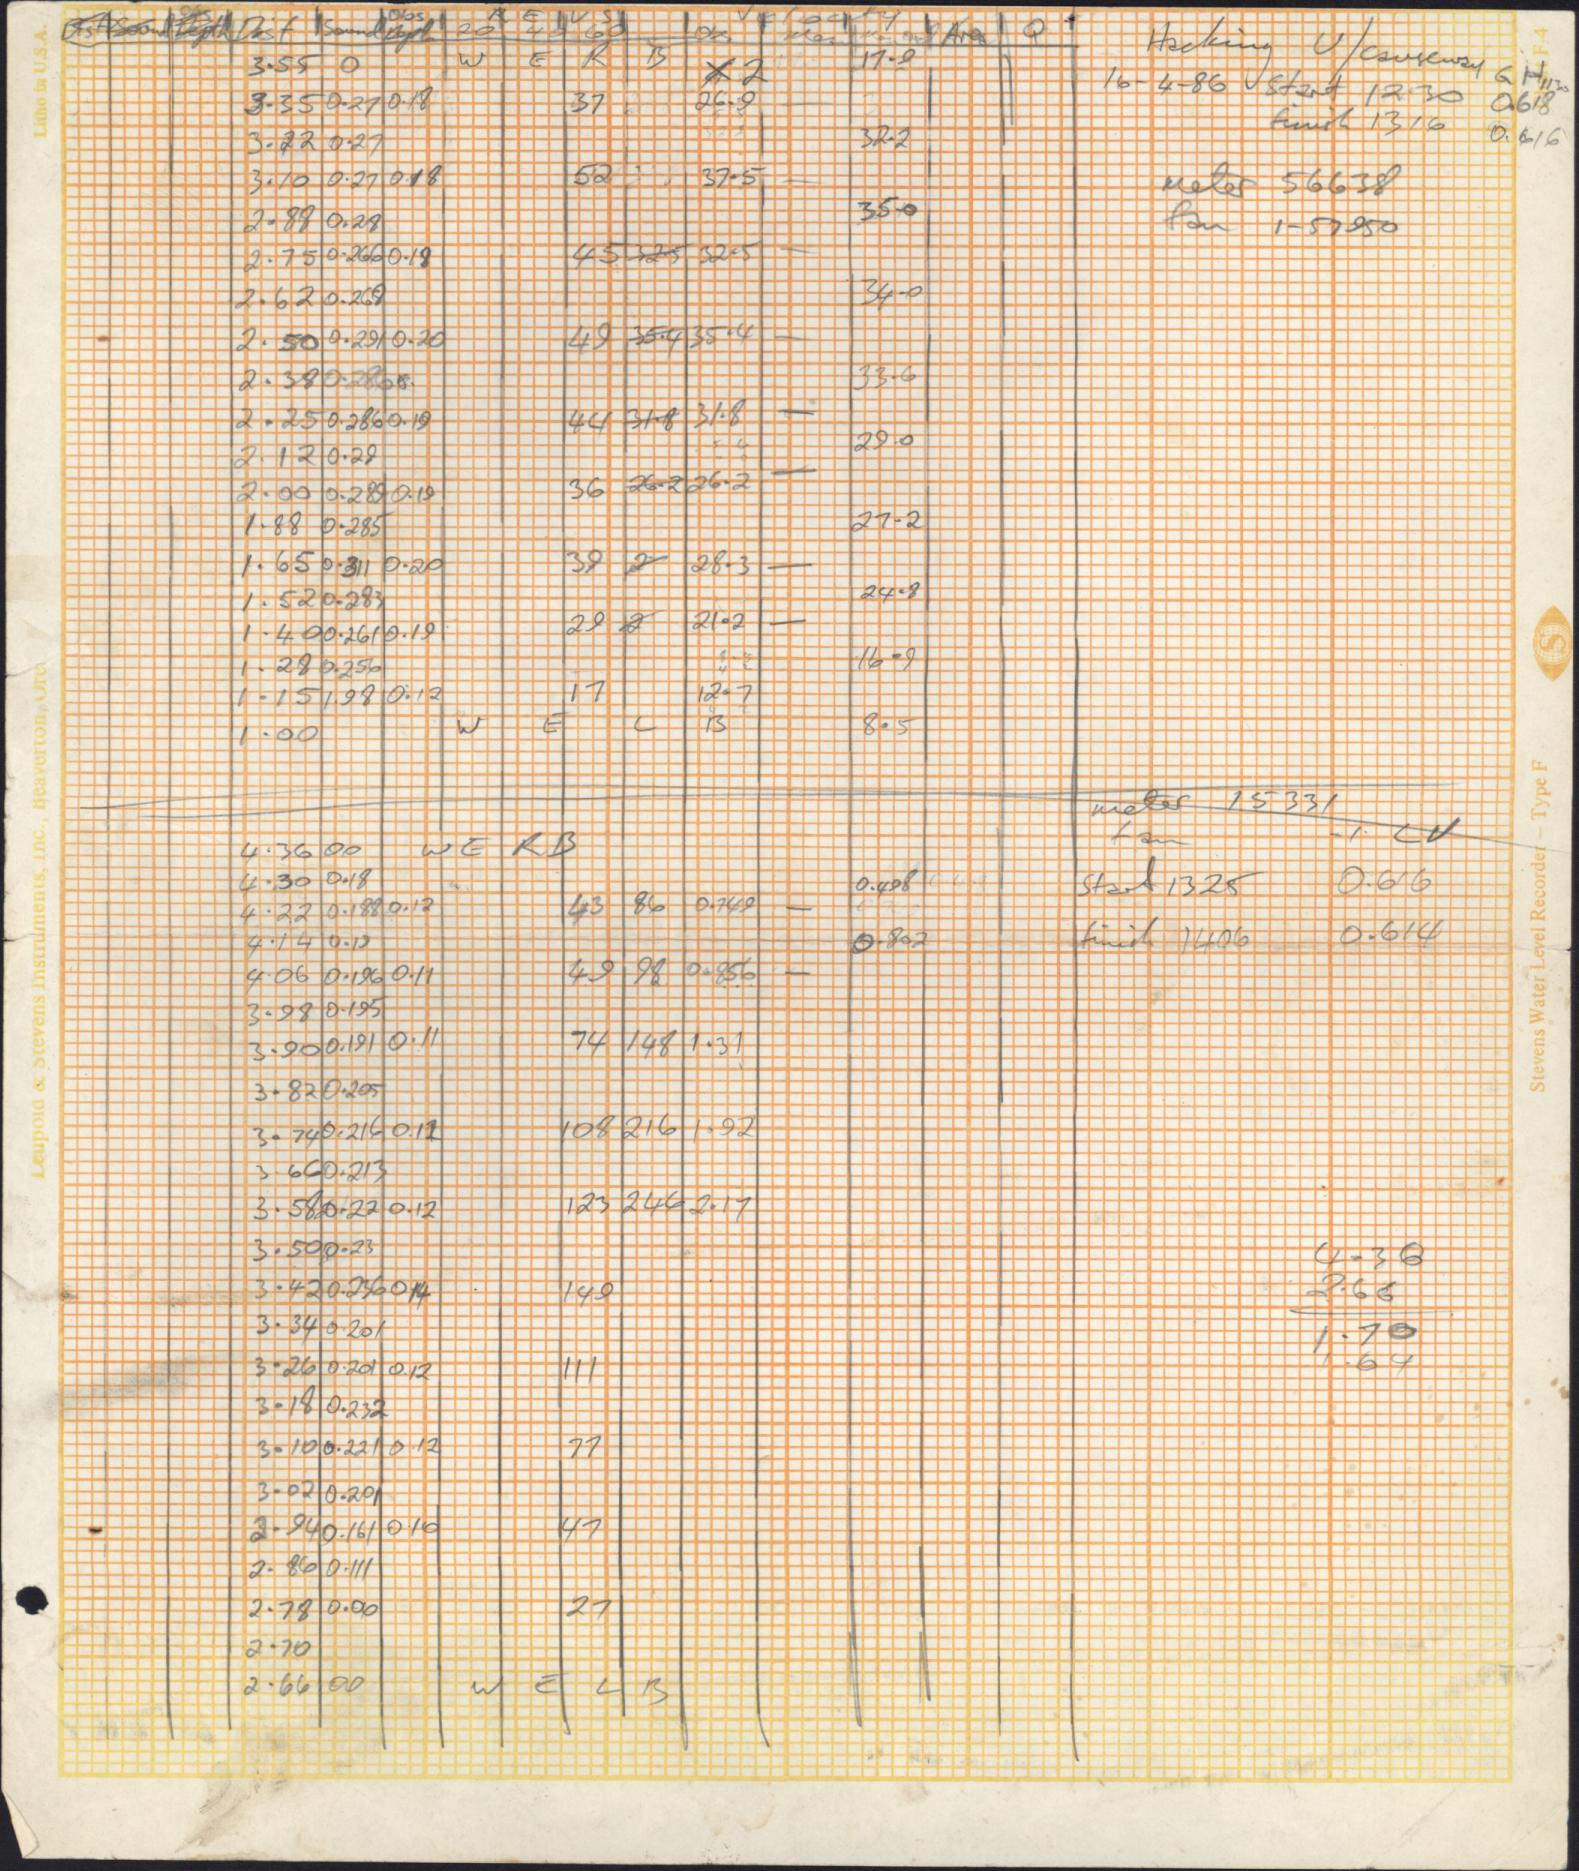 Dist Sound Obs Depth REVS 20 40 60 Obs Velocity Mean Area Q
Hacking U/causeway
16-4-86 Start 1230 GH 1130 0.618
finish 1316 0.616
meter 56638
fan 1-57950
3.55 0 W E R B X 2 17.9
3.35 0.27 0.18 37 26.9
3.22 0.27 32.2
3.10 0.27 0.18 52 37.5 —
2.88 0.28 35.0
2.75 0.266 0.18 45 32.5 32.5 —
2.62 0.268 34.0
2.50 0.291 0.20 49 35.4 35.4 —
2.38 0.286 33.6
2.25 0.286 0.19 44 31.8 31.8 —
2.12 0.29 29.0
2.00 0.289 0.19 36 26.2 26.2 —
1.88 0.285 27.2
1.65 0.311 0.20 39 2 28.3 —
1.52 0.283 24.8
1.40 0.261 0.19 29 2 21.2 —
1.28 0.256 16.9
1.15 1.98 0.12 17 12.7
1.00 W E L B 8.5
meter 15331
fan -1 CV
start 1325 0.616
finish 1406 0.614
4.36 00 W E R B
4.30 0.18 0.498
4.22 0.188 0.12 43 86 0.749 —
4.14 0.19 0.802
4.06 0.196 0.11 49 98 0.856 —
3.98 0.195
3.90 0.191 0.11 74 148 1.31
3.82 0.205
3.74 0.216 0.12 108 216 1.92
3.66 0.213
3.58 0.22 0.12 123 246 2.17
3.50 0.23
3.42 0.236 0.14 149
3.34 0.201
3.26 0.201 0.12 111
3.18 0.232
3.10 0.221 0.12 77
3.02 0.201
2.94 0.161 0.10 47
2.86 0.111
2.78 0.00 27
2.70
2.66 00 W E L B
4.36
2.66
1.70
1.64
Litho in U.S.A.
Leupold & Stevens Instruments, Inc., Beaverton, Ore.
F4
Stevens Water Level Recorder – Type F
S